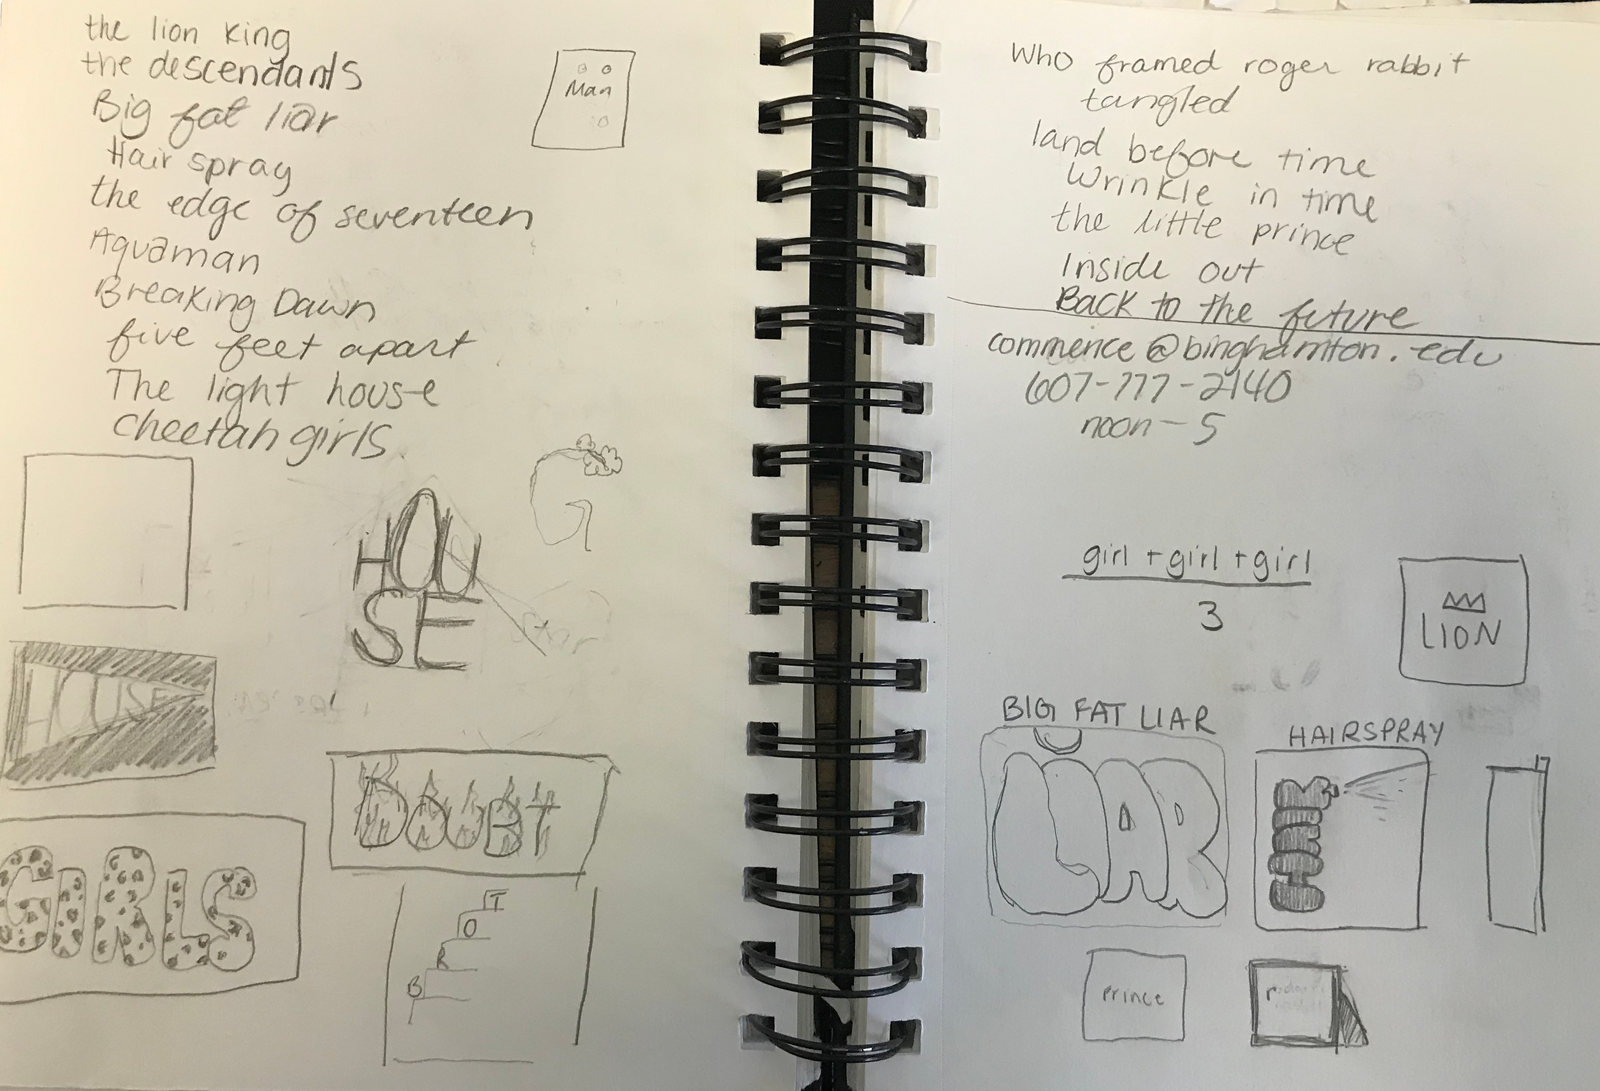 the lion king
the descendants
Big fat liar
Hair spray
the edge of seventeen
Aquaman
Breaking Dawn
five feet apart
The light house
cheetah girls.
Man
HOU
SE
G
HOUSE
DOUBT
GIRLS
T
O
R
B
Who framed roger rabbit
tangled
land before time
Wrinkle in time
the little prince
Inside out
Back to the future
commence@binghamton.edu
607-777-2140
noon - 5
girl + girl + girl
3
LION
BIG FAT LIAR
LIAR
HAIRSPRAY
prince